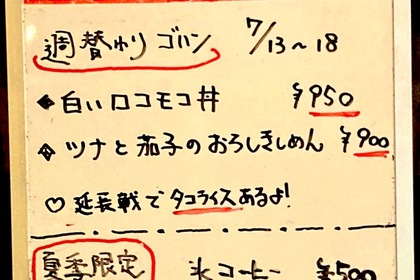 週替わりゴハン 7/13～18
◆白いロコモコ丼 ¥950
◆ツナと茄子のおろしきしめん ¥900
♡延長戦でタコライスあるよ!
夏季限定 氷コーヒー ¥500